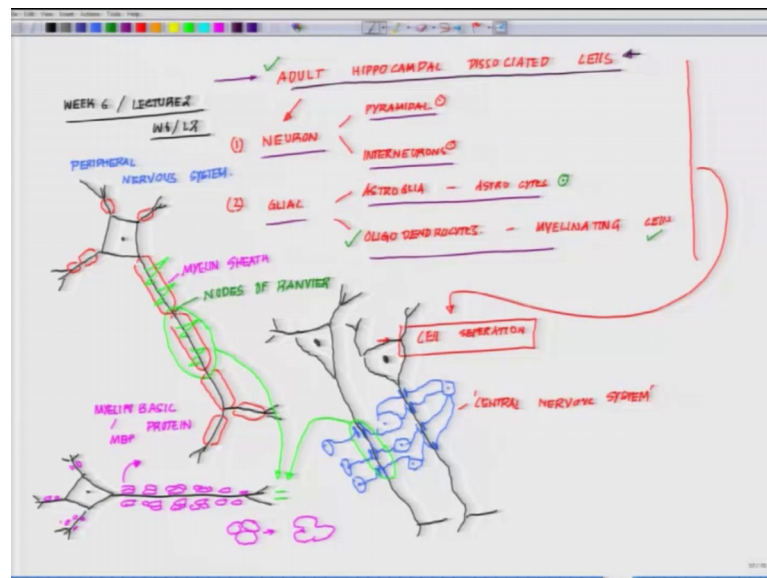 ADULT HIPPOCAMPAL DISSOCIATED CELLS
WEEK 6 / LECTURE 2
W6/L2
(1) NEURON
PYRAMIDAL
INTERNEURONS
(2) GLIAL
ASTROGLIA - ASTROCYTES
OLIGODENDROCYTES - MYELINATING CELLS
PERIPHERAL
NERVOUS SYSTEM.
MYELIN SHEATH
NODES OF RANVIER
CELL SEPERATION
'CENTRAL NERVOUS SYSTEM'
MYELIN BASIC
/ PROTEIN
MBP